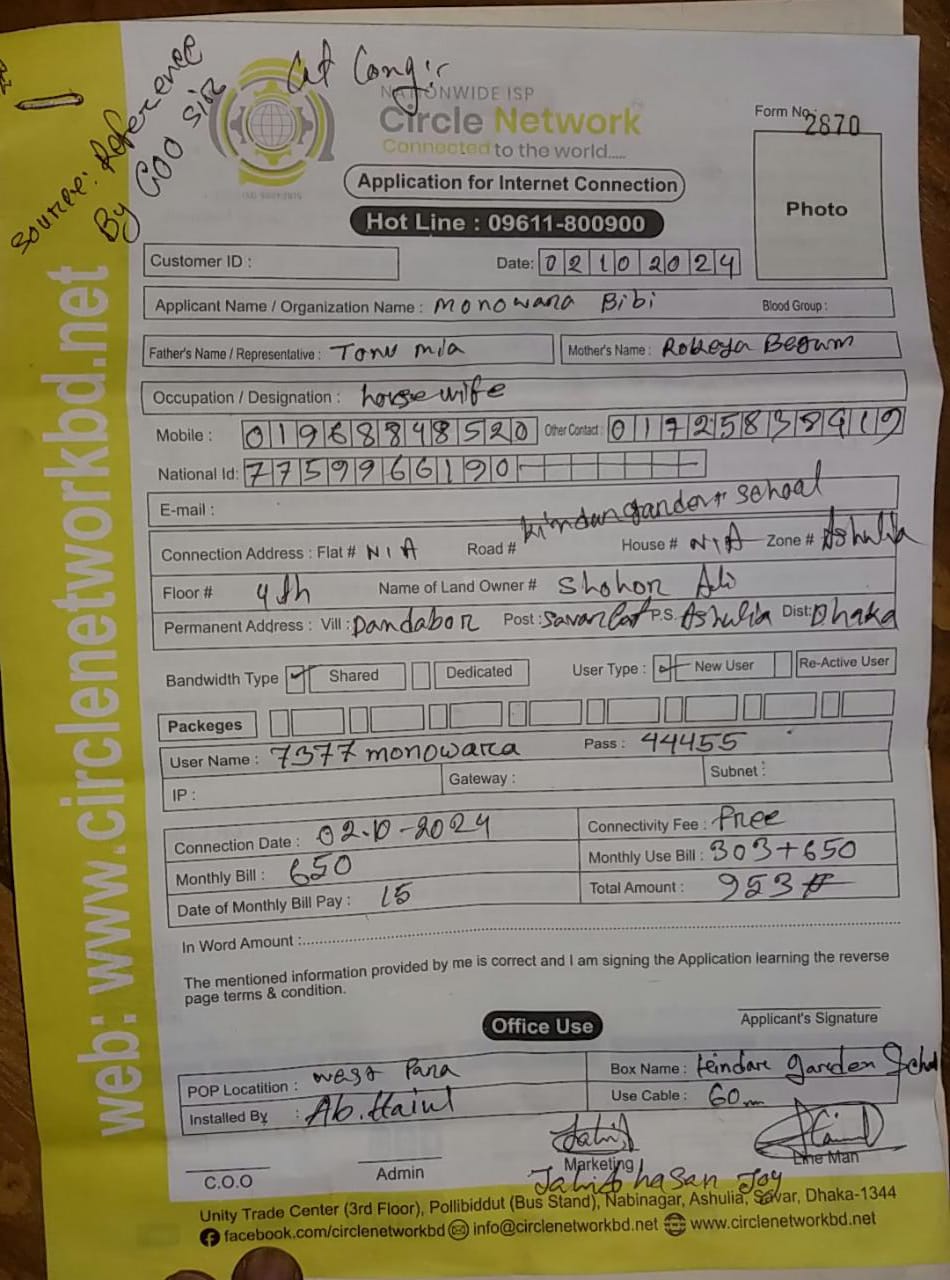 Source: Reference
By COO sir
Cat Congi:
NATIONWIDE ISP
Circle Network
Connected to the world.....
Form No: 2870
Application for Internet Connection
Photo
Hot Line : 09611-800900
Customer ID :
Date: 02102024
Applicant Name / Organization Name : Monowara Bibi Blood Group :
Father's Name / Representative : Tonu mia Mother's Name : Rokeya Begum
Occupation / Designation : housewife
Mobile : 01968848520 Other Contact : 017258389
National Id: 7759966190
E-mail :
Connection Address : Flat # N/A Road # kindangandert school House # N/A Zone # Ashulia
Floor # 4th Name of Land Owner # Shohor Ali
Permanent Address : Vill : Dandabor Post : Savar P.S. Ashulia Dist: Dhaka
Bandwidth Type Shared Dedicated User Type : New User Re-Active User
Packeges
User Name : 7377monowara Pass : 44455
IP : Gateway : Subnet :
Connection Date : 02-10-2024 Connectivity Fee : Free
Monthly Bill : 650 Monthly Use Bill : 303+650
Date of Monthly Bill Pay : 15 Total Amount : 953
In Word Amount :
The mentioned information provided by me is correct and I am signing the Application learning the reverse
page terms & condition.
Applicant's Signature
Office Use
POP Locatition : west Para Box Name : garden
Installed By : Ab. Use Cable : 60m
C.O.O Admin Marketing Line Man
Jahid hasan Joy
Unity Trade Center (3rd Floor), Pollibiddut (Bus Stand), Nabinagar, Ashulia, Savar, Dhaka-1344
facebook.com/circlenetworkbd info@circlenetworkbd.net www.circlenetworkbd.net
web: www.circlenetworkbd.net